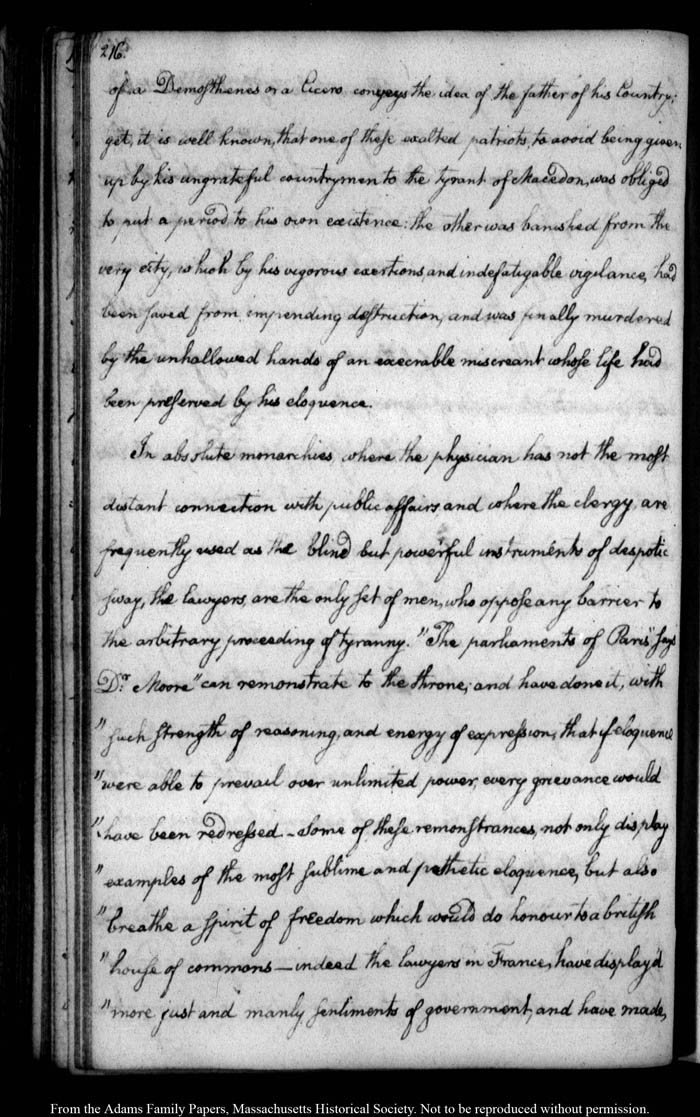 216.
of a Demosthenes or a Cicero conveys the idea of the father of his Country;
yet, it is well known, that one of these exalted patriots, to avoid being given
up by his ungrateful countrymen to the tyrant of Macedon, was obliged
to put a period to his own existence: the other was banished from the
very city, which by his vigorous exertions, and indefatigable vigilance, had
been saved from impending destruction, and was finally murdered
by the unhallowed hands of an execrable miscreant whose life had
been preserved by his eloquence.
In absolute monarchies, where the physician has not the most
distant connection with public affairs, and where the clergy, are
frequently used as the blind but powerful instruments of despotic
sway, the lawyers, are the only set of men, who oppose any barrier to
the arbitrary proceeding of tyranny. "The parliaments of Paris" says
Dr. Moore "can remonstrate to the throne; and have done it, with
" such strength of reasoning, and energy of expression, that if eloquence
" were able to prevail over unlimited power, every grievance would
" have been redressed - Some of these remonstrances, not only display
" examples of the most sublime and pathetic eloquence, but also
" breathe a spirit of freedom which would do honour to a british
" house of commons — indeed the lawyers in France, have display'd
" more just and manly sentiments of government, and have made,
From the Adams Family Papers, Massachusetts Historical Society. Not to be reproduced without permission.